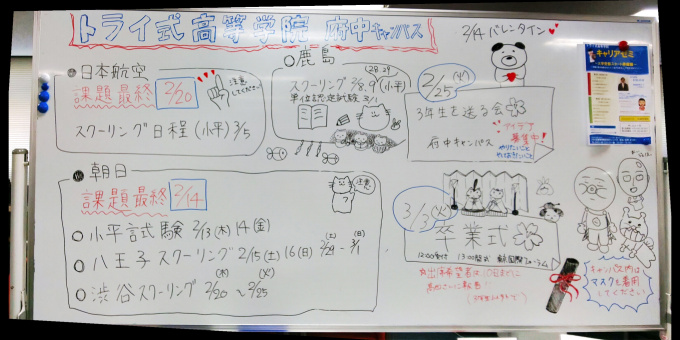 トライ式高等学院 府中キャンパス
2/14 バレンタイン
日本航空
課題最終 2/20
注意してください
スクーリング日程(小平) 3/5
鹿島
(28.29)
スクーリング 2/8.9 (小平)
単位認定試験 3/1
2/25(火)
3年生を送る会
府中キャンパス
アイデア
募集中!
やりたいこと
キャリアゼミ
朝日
課題最終 2/14
注意
小平試験 2/13(木) 14(金)
八王子スクーリング 2/15(土) 16(日) 2/29(土)-3/1(日)
渋谷スクーリング 2/20(木)~2/25(火)
3/3(火)
卒業式
12:00受付
キャンパス内は
マスクを着用
してください